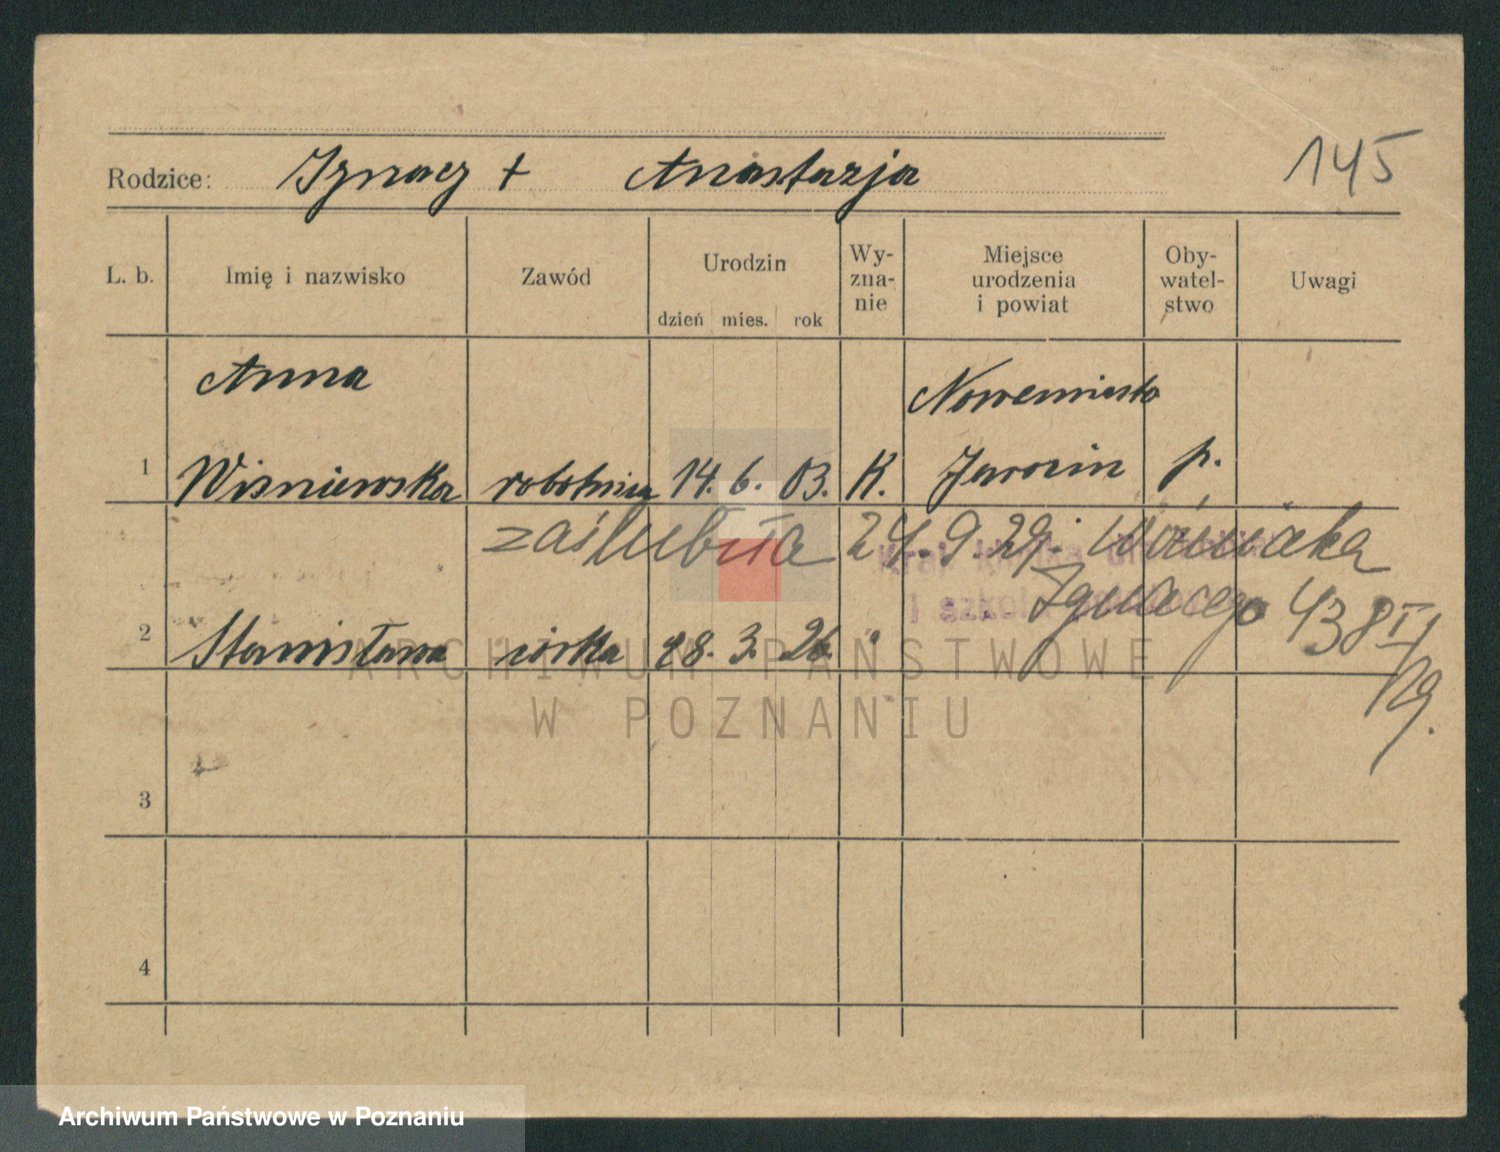 145
Rodzice: Ignacy + Anastazja
L. b. Imię i nazwisko Zawód Urodzin dzień mies. rok Wy-zna-nie Miejsce urodzenia i powiat Oby-watel-stwo Uwagi
Anna Nowemiasto
1 Wiśniewska robotnica 14. 6. 03. K. Jarocin p.
zaślubiła 24. 9. 29. Woźniaka
Ignacego 438 IV/29.
2 Stanisława córka 28. 3. 26. "
ARCHIWUM PAŃSTWOWE
W POZNANIU
3
4
Archiwum Państwowe w Poznaniu